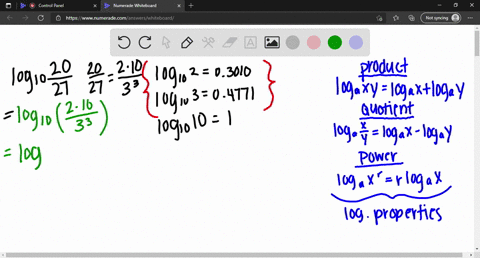 Control Panel
Numerade Whiteboard
https://www.numerade.com/answers/whiteboard/
Not syncing
log₁₀ 20/27 20/27 = 2·10/3³
= log₁₀ (2·10/3³)
= log
log₁₀ 2 = 0.3010
log₁₀ 3 = 0.4771
log₁₀ 10 = 1
product
logₐ xy = logₐ x + logₐ y
Quotient
logₐ x/y = logₐ x - logₐ y
power
logₐ xʳ = r logₐ x
log. properties